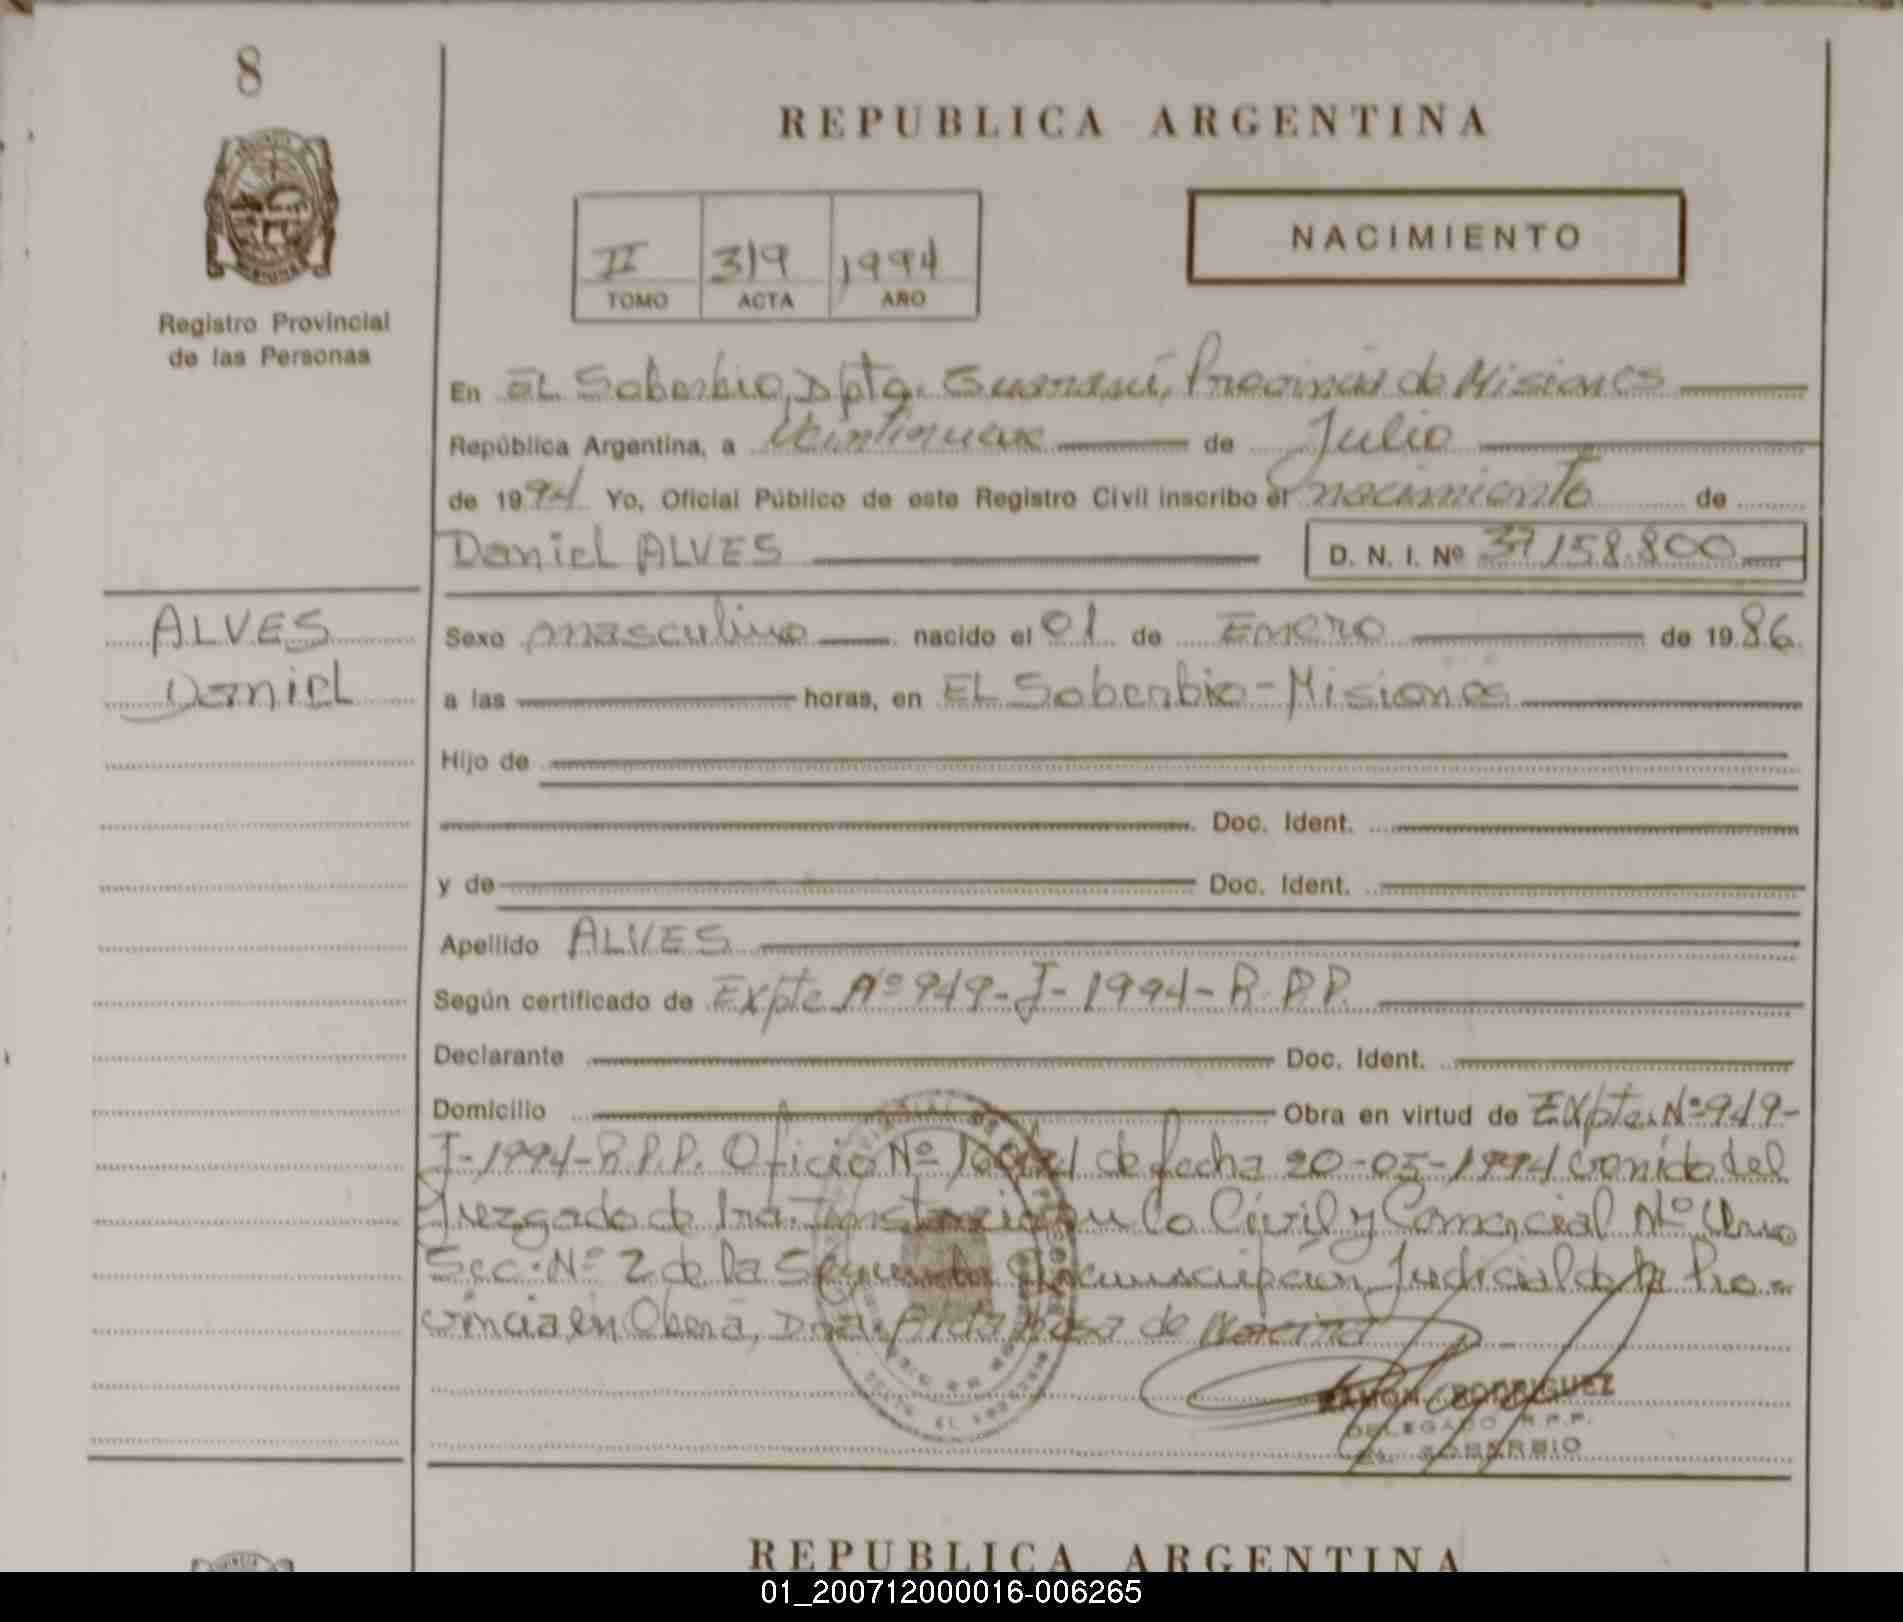 8
REPUBLICA ARGENTINA
NACIMIENTO
II 319 1994
TOMO ACTA AÑO
Registro Provincial
de las Personas
En EL Soberbio, Dpto. Guaraní, Provincia de Misiones
República Argentina, a Veintinueve de Julio
de 1994 Yo, Oficial Público de este Registro Civil inscribo el nacimiento de
Daniel ALVES D. N. I. Nº 37.158.800
ALVES
Daniel
Sexo masculino nacido el 01 de Enero de 1986.
a las horas, en EL Soberbio - Misiones
Hijo de
Doc. Ident.
y de Doc. Ident.
Apellido ALVES
Según certificado de Expte Nº 949-J-1994-R.P.P.
Declarante Doc. Ident.
Domicilio Obra en virtud de Expte. Nº 949-
J-1994-R.P.P. Oficio Nº de fecha 20-05-1994 venido del
Juzgado de 1ra. Instancia en lo Civil y Comercial Nº Uno
Sec. Nº 2 de la Segunda Circunscripción Judicial de la Pro-
vincia en Oberá, Dra. de
RAMON RODRIGUEZ
DELEGADO R.P.P.
EL SOBERBIO
REPUBLICA ARGENTINA
01_200712000016-006265